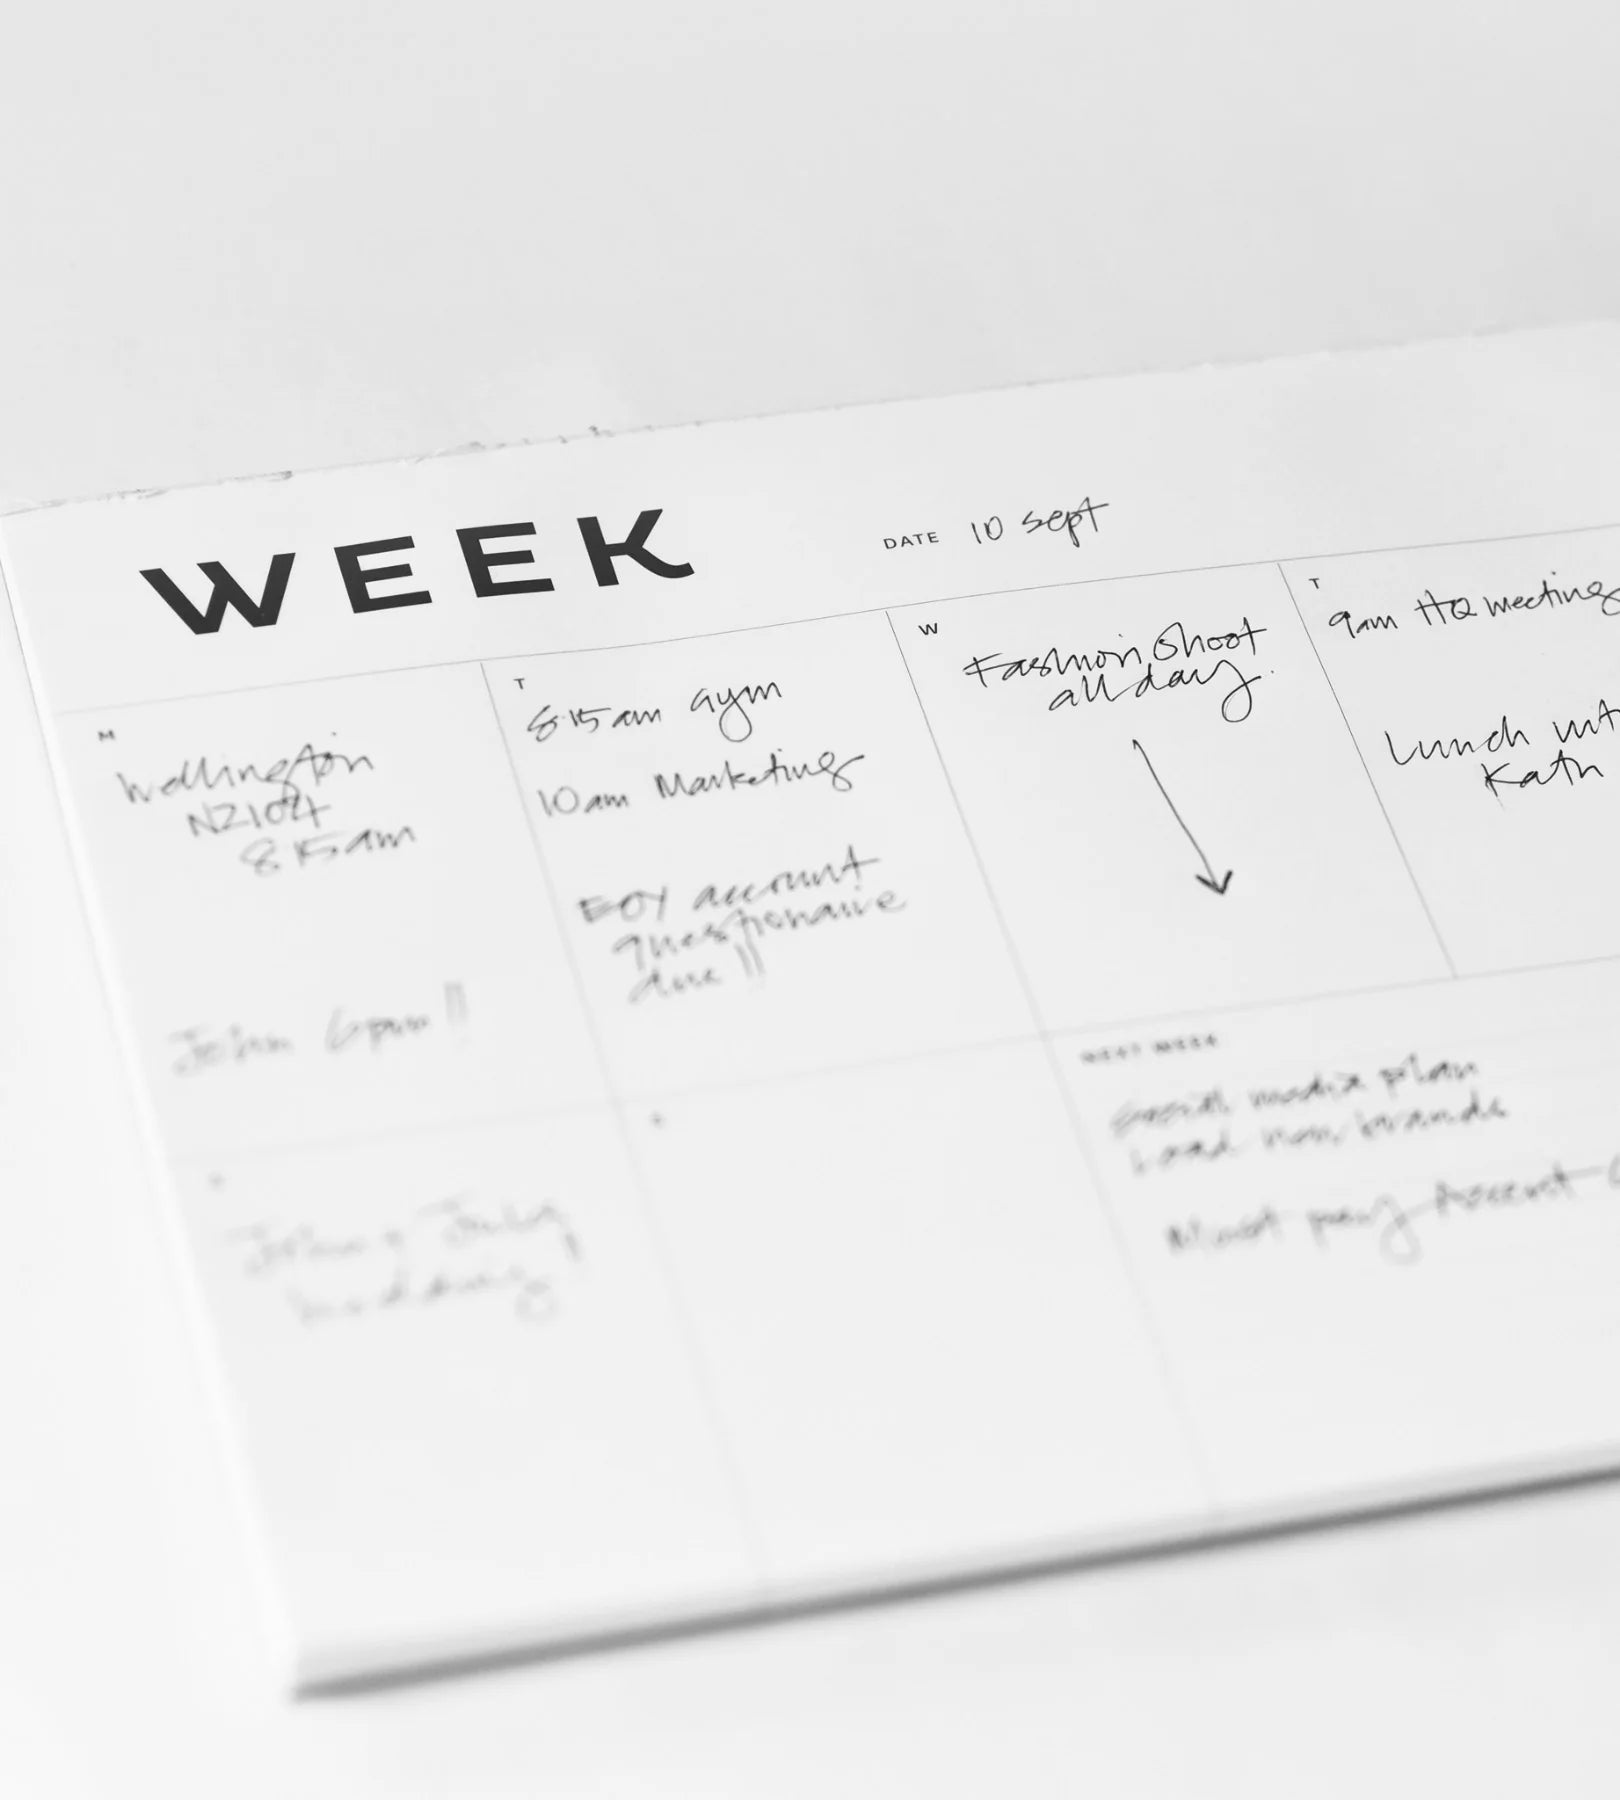 WEEK
DATE 10 sept
M
Wellington
NZ104
8 15am
John 6pm !!
T
8:15am Gym
10am Marketing
EOY account
questionaire
due !!
W
Fashion Shoot
all day.
T
9am HQ meeting
Lunch
Kath
John + July
wedding !
NEXT WEEK
Social media plan
Load new brands
Must pay